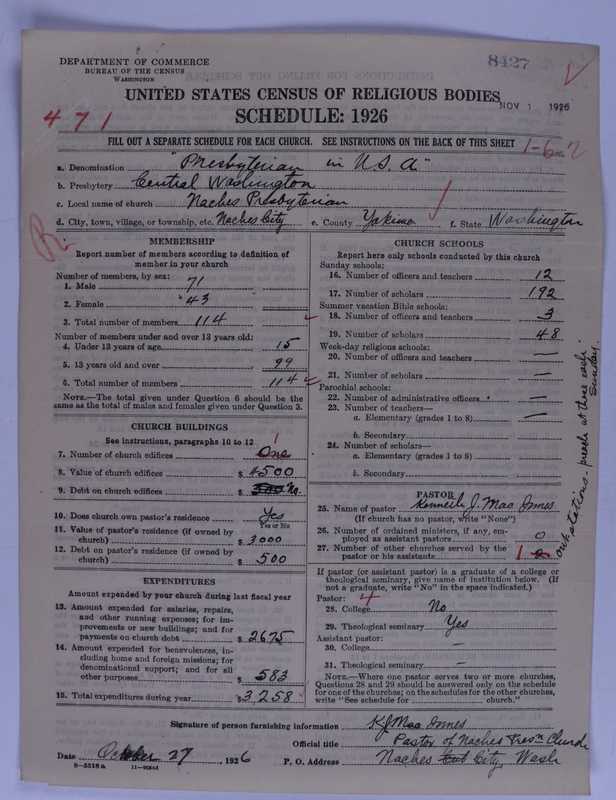 8427
DEPARTMENT OF COMMERCE
BUREAU OF THE CENSUS
WASHINGTON
UNITED STATES CENSUS OF RELIGIOUS BODIES
NOV 1 1926
471
SCHEDULE: 1926
FILL OUT A SEPARATE SCHEDULE FOR EACH CHURCH. SEE INSTRUCTIONS ON THE BACK OF THIS SHEET
1-6-2
a. Denomination "Presbyterian in U.S.A."
b. Presbytery Central Washington
c. Local name of church Naches Presbyterian
d. City, town, village, or township, etc. Naches City e. County Yakima f. State Washington
MEMBERSHIP
Report number of members according to definition of
member in your church
Number of members, by sex:
1. Male 71
2. Female 43
3. Total number of members 114
Number of members under and over 13 years old:
4. Under 13 years of age 15
5. 13 years old and over 99
6. Total number of members 114
NOTE.—The total given under Question 6 should be
same as the total of males and females given under Question 3.
CHURCH BUILDINGS
See instructions, paragraphs 10 to 12
1
7. Number of church edifices One
8. Value of church edifices $ 4500
9. Debt on church edifices $ 300 No.
10. Does church own pastor's residence Yes
Yes or No
11. Value of pastor's residence (if owned by
church) $ 3000
12. Debt on pastor's residence (if owned by
church) $ 500
EXPENDITURES
Amount expended by your church during last fiscal year
13. Amount expended for salaries, repairs,
and other running expenses; for im-
provements or new buildings; and for
payments on church debt $ 2675
14. Amount expended for benevolences, in-
cluding home and foreign missions; for
denominational support; and for all
other purposes $ 583
15. Total expenditures during year $ 3258
CHURCH SCHOOLS
Report here only schools conducted by this church
Sunday schools:
16. Number of officers and teachers 12
17. Number of scholars 192
Summer vacation Bible schools:
18. Number of officers and teachers 3
19. Number of scholars 48
Week-day religious schools:
20. Number of officers and teachers —
21. Number of scholars —
Parochial schools:
22. Number of administrative officers —
23. Number of teachers—
a. Elementary (grades 1 to 8) —
b. Secondary
24. Number of scholars—
a. Elementary (grades 1 to 8)
b. Secondary
PASTOR
25. Name of pastor J. Mac Innes
(If church has no pastor, write "None")
26. Number of ordained ministers, if any, em-
ployed as assistant pastors 0
27. Number of other churches served by the
pastor or his assistants 1
out stations. preach at three each Sunday
If pastor (or assistant pastor) is a graduate of a college or
theological seminary, give name of institution below. (If
not a graduate, write "No" in the space indicated.)
Pastor: 4
28. College No
29. Theological seminary Yes
Assistant pastor:
30. College —
31. Theological seminary —
NOTE.—Where one pastor serves two or more churches,
Questions 28 and 29 should be answered only on the schedule
for one of the churches; on the schedules for the other churches,
write "See schedule for church."
Signature of person furnishing information K J Mac Innes
Official title Pastor of Naches Presn Church
Date October 27, 1926 P. O. Address Naches City, Wash
8—5518 a 11—9034d